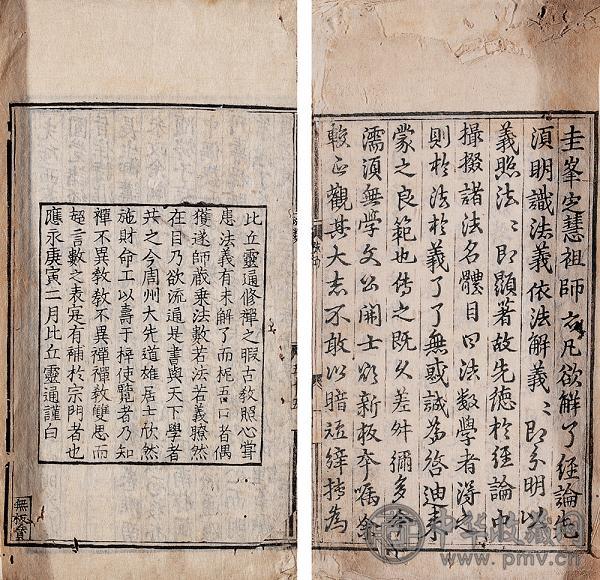 圭峯定慧祖師云凡欲解了經論先
須明識法義依法解義〻即分明以
義照法〻即顯著故先德於經論中
撮掇諸法名體目曰法數學者得之
則於法於義了了無惑誠爲啓迪来
蒙之良範也傳之既久差舛彌多今
濡須無學文公開士欲新板本囑余
較正觀其大志不敢以暗短繹持爲
比丘靈通修禪之暇古教照心嘗
患法義有未解了而梔吾口者偶
獲遂師蔵乗法數若法若義瞭然
在目乃欲流通是書與天下學者
共之今周州大先道雄居士欣然
施財命工以壽于梓使覽者乃知
禪不異教教不異禪禪教雙思而
超言數之表寔有補於宗門者也
應永庚寅二月比丘靈通謹白
無板會
中华收藏网
www.pmv.cn